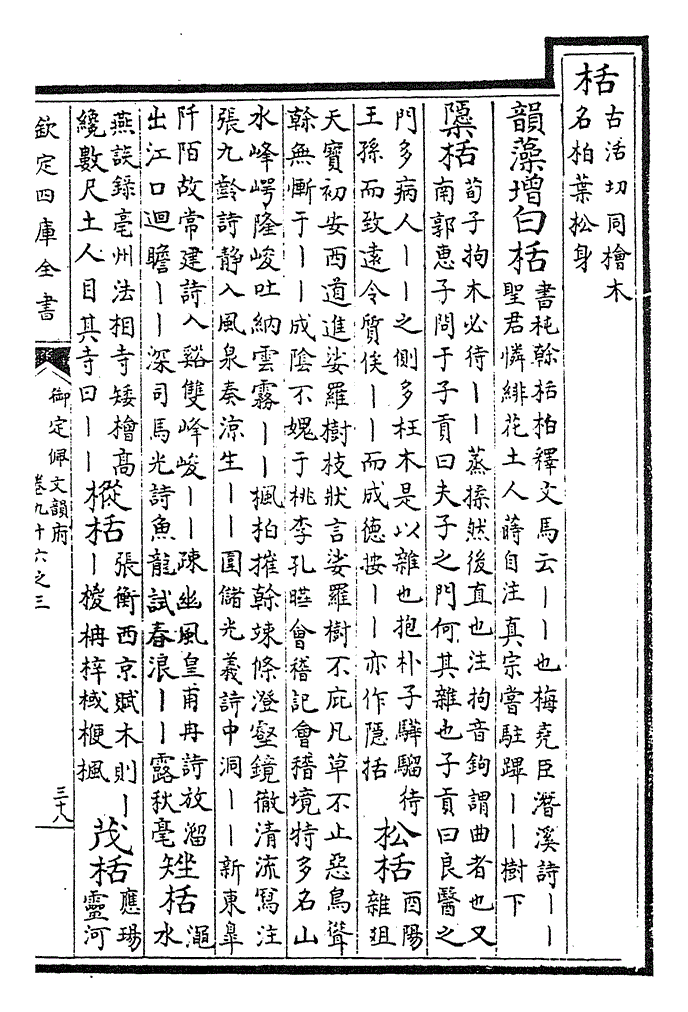 栝
古活切同檜木
名柏葉松身
韻藻增白栝
書杶榦栝柏釋文馬云丨丨也梅堯臣濳溪詩丨丨
聖君憐緋花土人蒔自注真宗嘗駐蹕丨丨樹下
檃栝
荀子拘木必待丨丨蒸揉然後直也注拘音鉤謂曲者也又
南郭惠子問于子貢曰夫子之門何其雜也子貢曰良醫之
門多病人丨丨之側多枉木是以雜也抱朴子驊騮待
王孫而致遠令質俟丨丨而成德按丨丨亦作隱括
松栝
酉陽
雜俎
天寶初安西道進娑羅樹枝狀言娑羅樹不庇凡草不止惡鳥聳
榦無慚于丨丨成陰不媿于桃李孔曄會稽記會稽境特多名山
水峰崿隆峻吐納雲霧丨丨楓柏擢榦竦條澄壑鏡徹清流寫注
張九齡詩静入風泉奏涼生丨丨圍儲光羲詩中洞丨丨新東臯
阡陌故常建詩入谿雙峰峻丨丨疎幽風皇甫冉詩放溜
出江口迴瞻丨丨深司馬光詩魚龍試春浪丨丨露秋毫
矬栝
澠
水
燕談錄亳州法相寺矮檜高
纔數尺土人目其寺曰丨丨
樅栝
張衡西京賦木則丨
丨椶枏梓棫楩楓
茂栝
應瑒
靈河
欽定四庫全書
御定佩文韻府
卷九十六之三
三十八